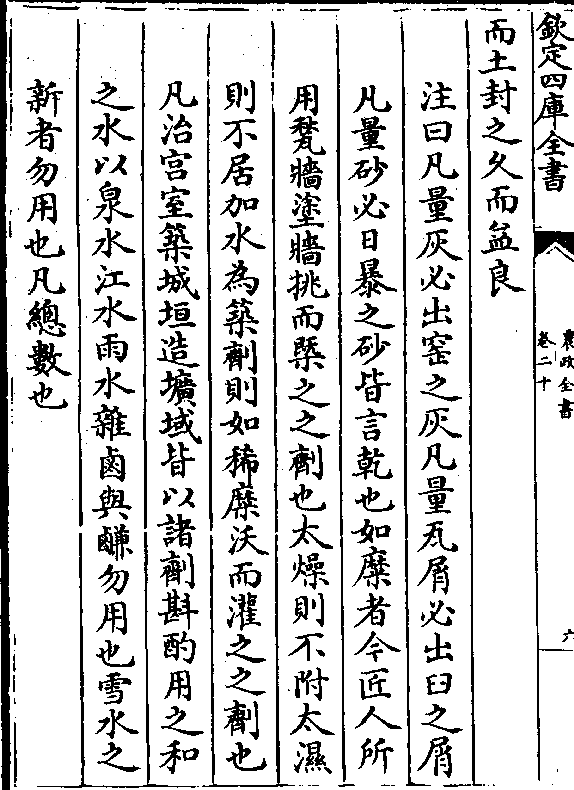 欽定四庫全書
農政全書
卷二十
六
而土封之久而益良
注曰凡量灰必出窑之灰凡量瓦屑必出臼之屑
凡量砂必日暴之砂皆言乾也如糜者今匠人所
用甃牆塗牆挑而槩之之劑也太燥則不附太濕
則不居加水為築劑則如稀糜沃而灌之之劑也
凡治宫室築城垣造壙域皆以諸劑斟酌用之和
之水以泉水江水雨水雜鹵與鹻勿用也雪水之
新者勿用也凡總數也